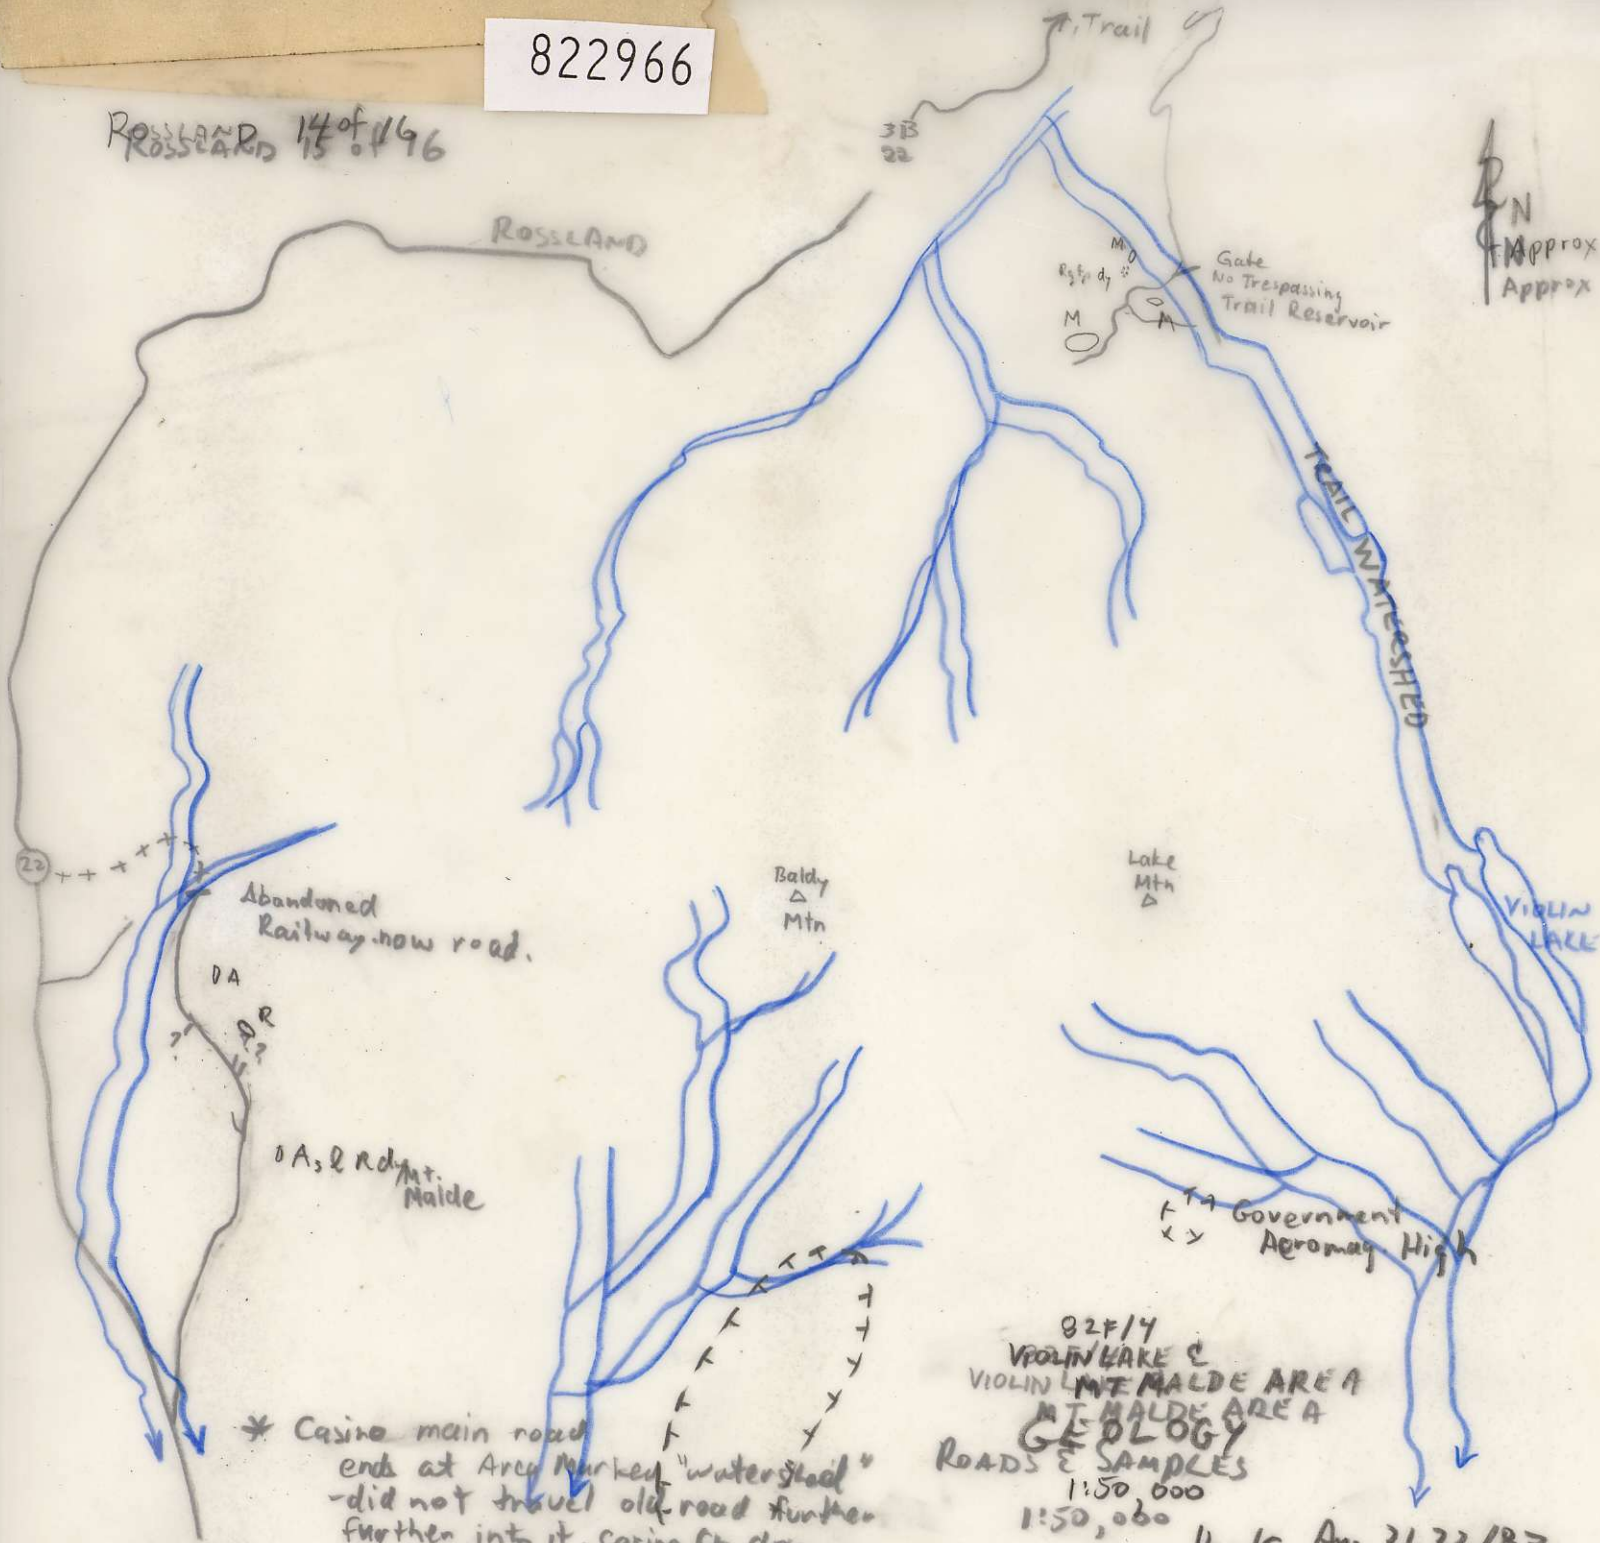 822966
Trail
ROSSLAND 14 of 16
ROSSLAND 15 of 96
3B
22
ROSSLAND
N
N
Approx
Approx
M
Gate
No Trespassing
Trail Reservoir
M
M
TRAIL WATERSHED
22
Abandoned
Railway now road.
Baldy
Mtn
Lake
Mtn
VIOLIN
LAKE
A
R
?
Mt.
Malde
Government
Aeromag. High
82F/4
VIOLIN LAKE &
VIOLIN LAKE
MT MALDE AREA
MT. MALDE AREA
GEOLOGY
ROADS & SAMPLES
1:50,000
1:50,000
* Casino main road
ends at Area Marked "watershed"
-did not travel old road further
further into it